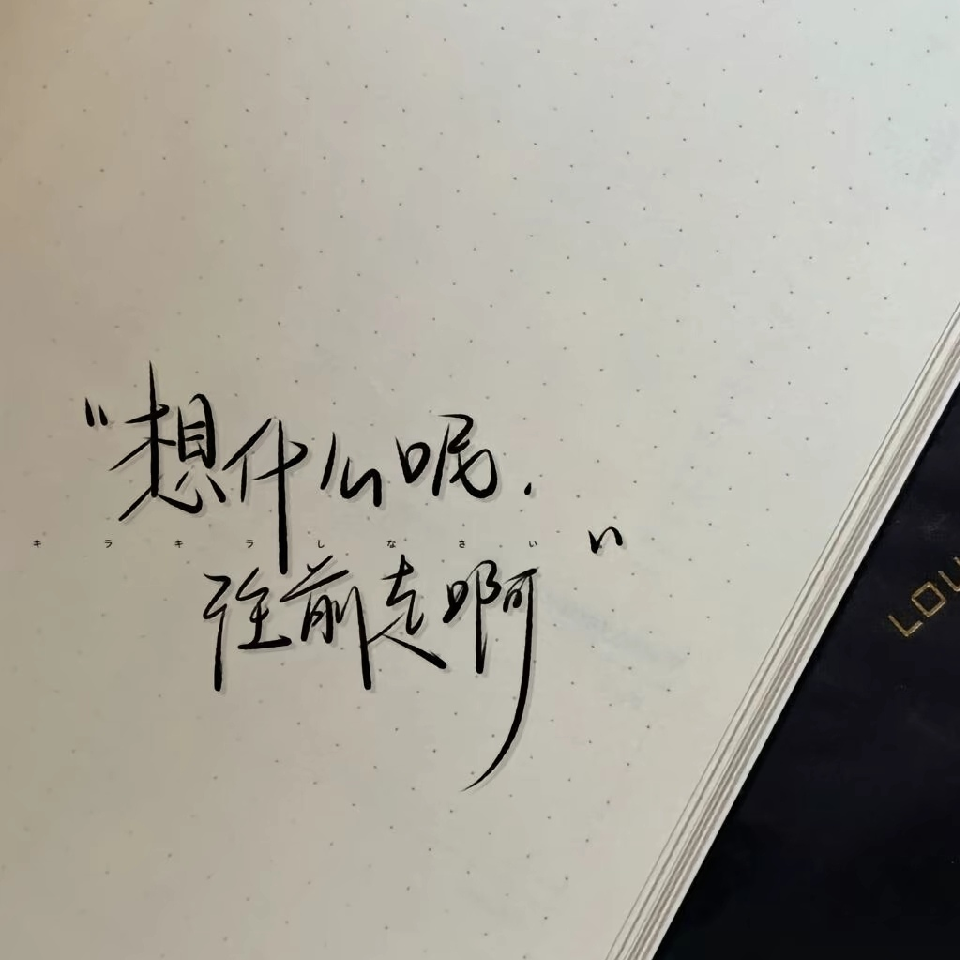 "想什么呢.
キラキラしなさい
往前走啊"
LOU